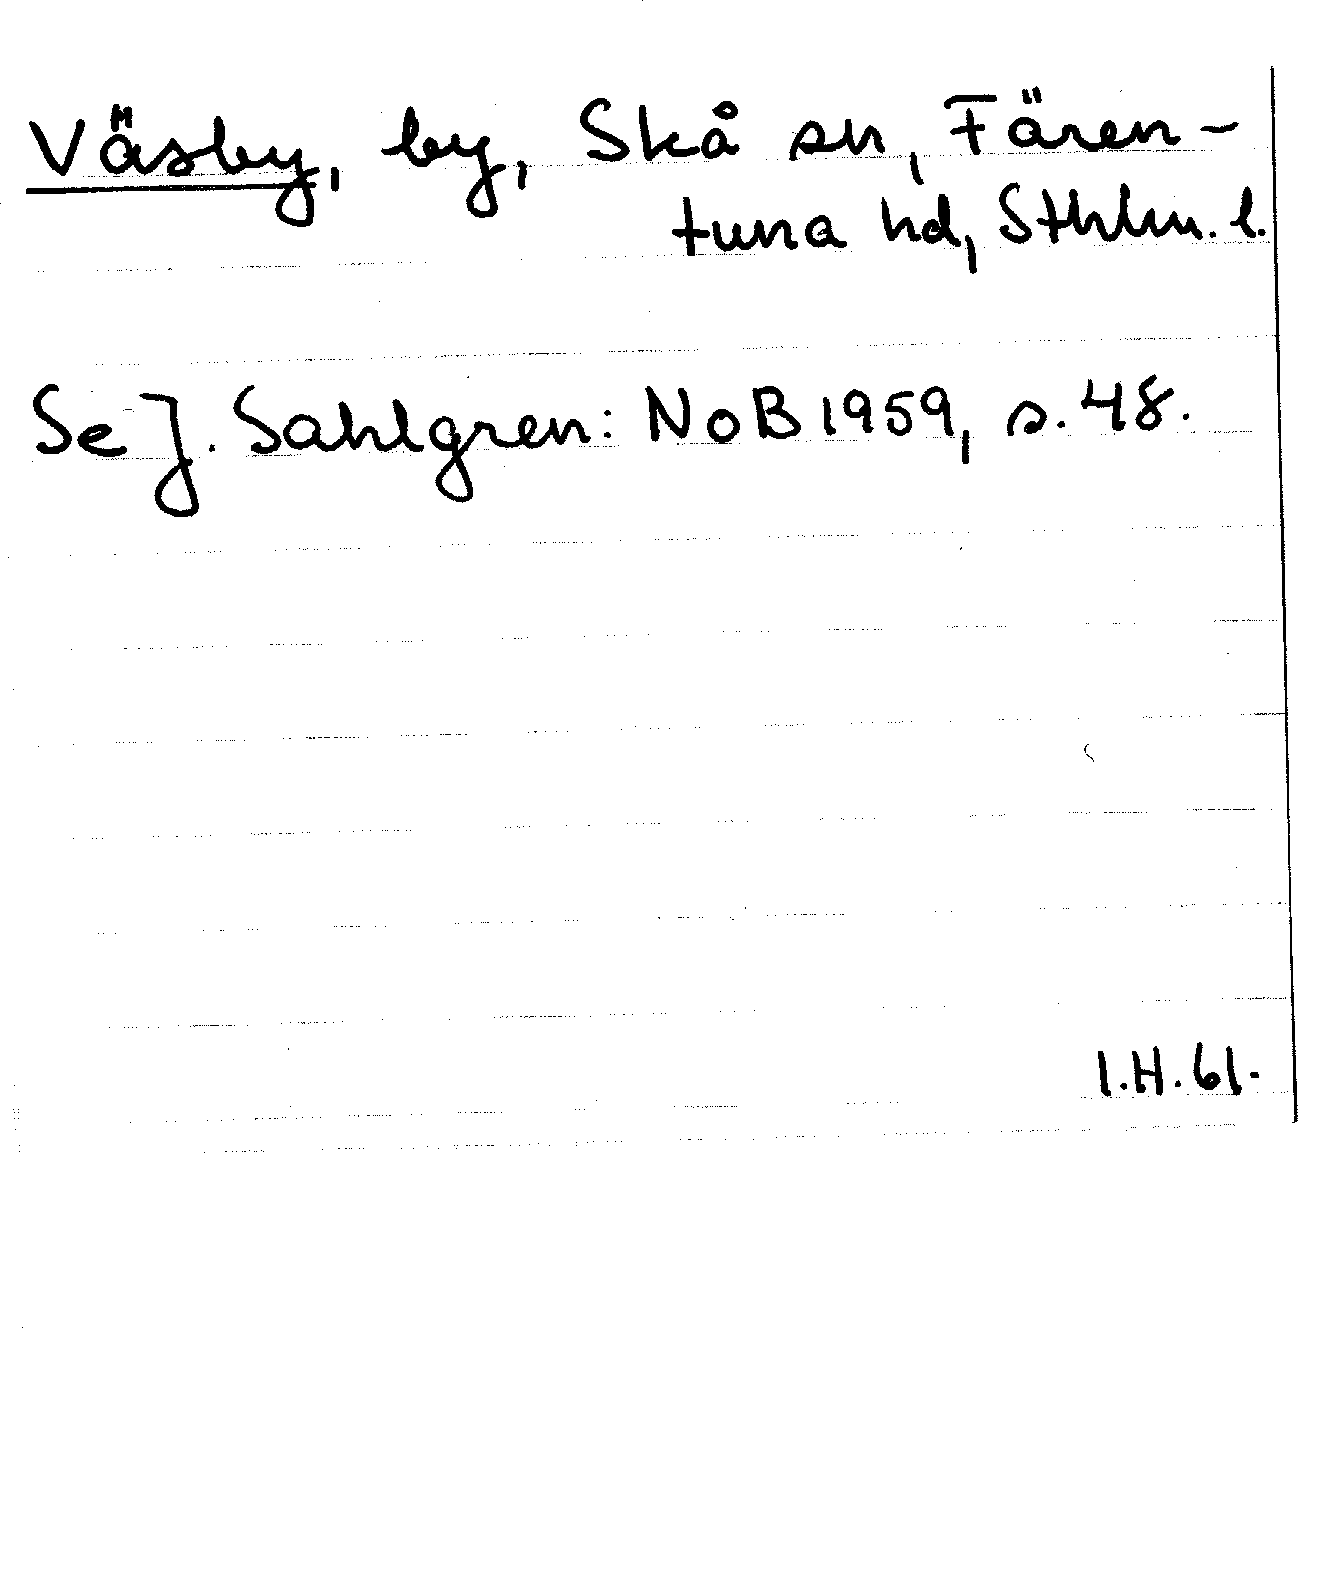 Väsby, by, Skå sn, Fären-
tuna hd, Sthlm. l.
Se J. Sahlgren: NoB 1959, s. 48.
I.H. 61.